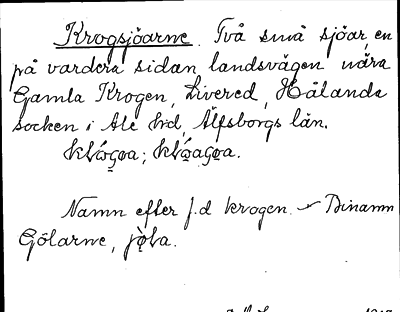 Krogsjöarne. Två små sjöar, en
på vardera sidan landsvägen nära
Gamla Krogen, Livered, Hålanda
socken i Ale hd, Älfsborgs län.
Namn efter f.d krogen. Binamn
Gölarne,